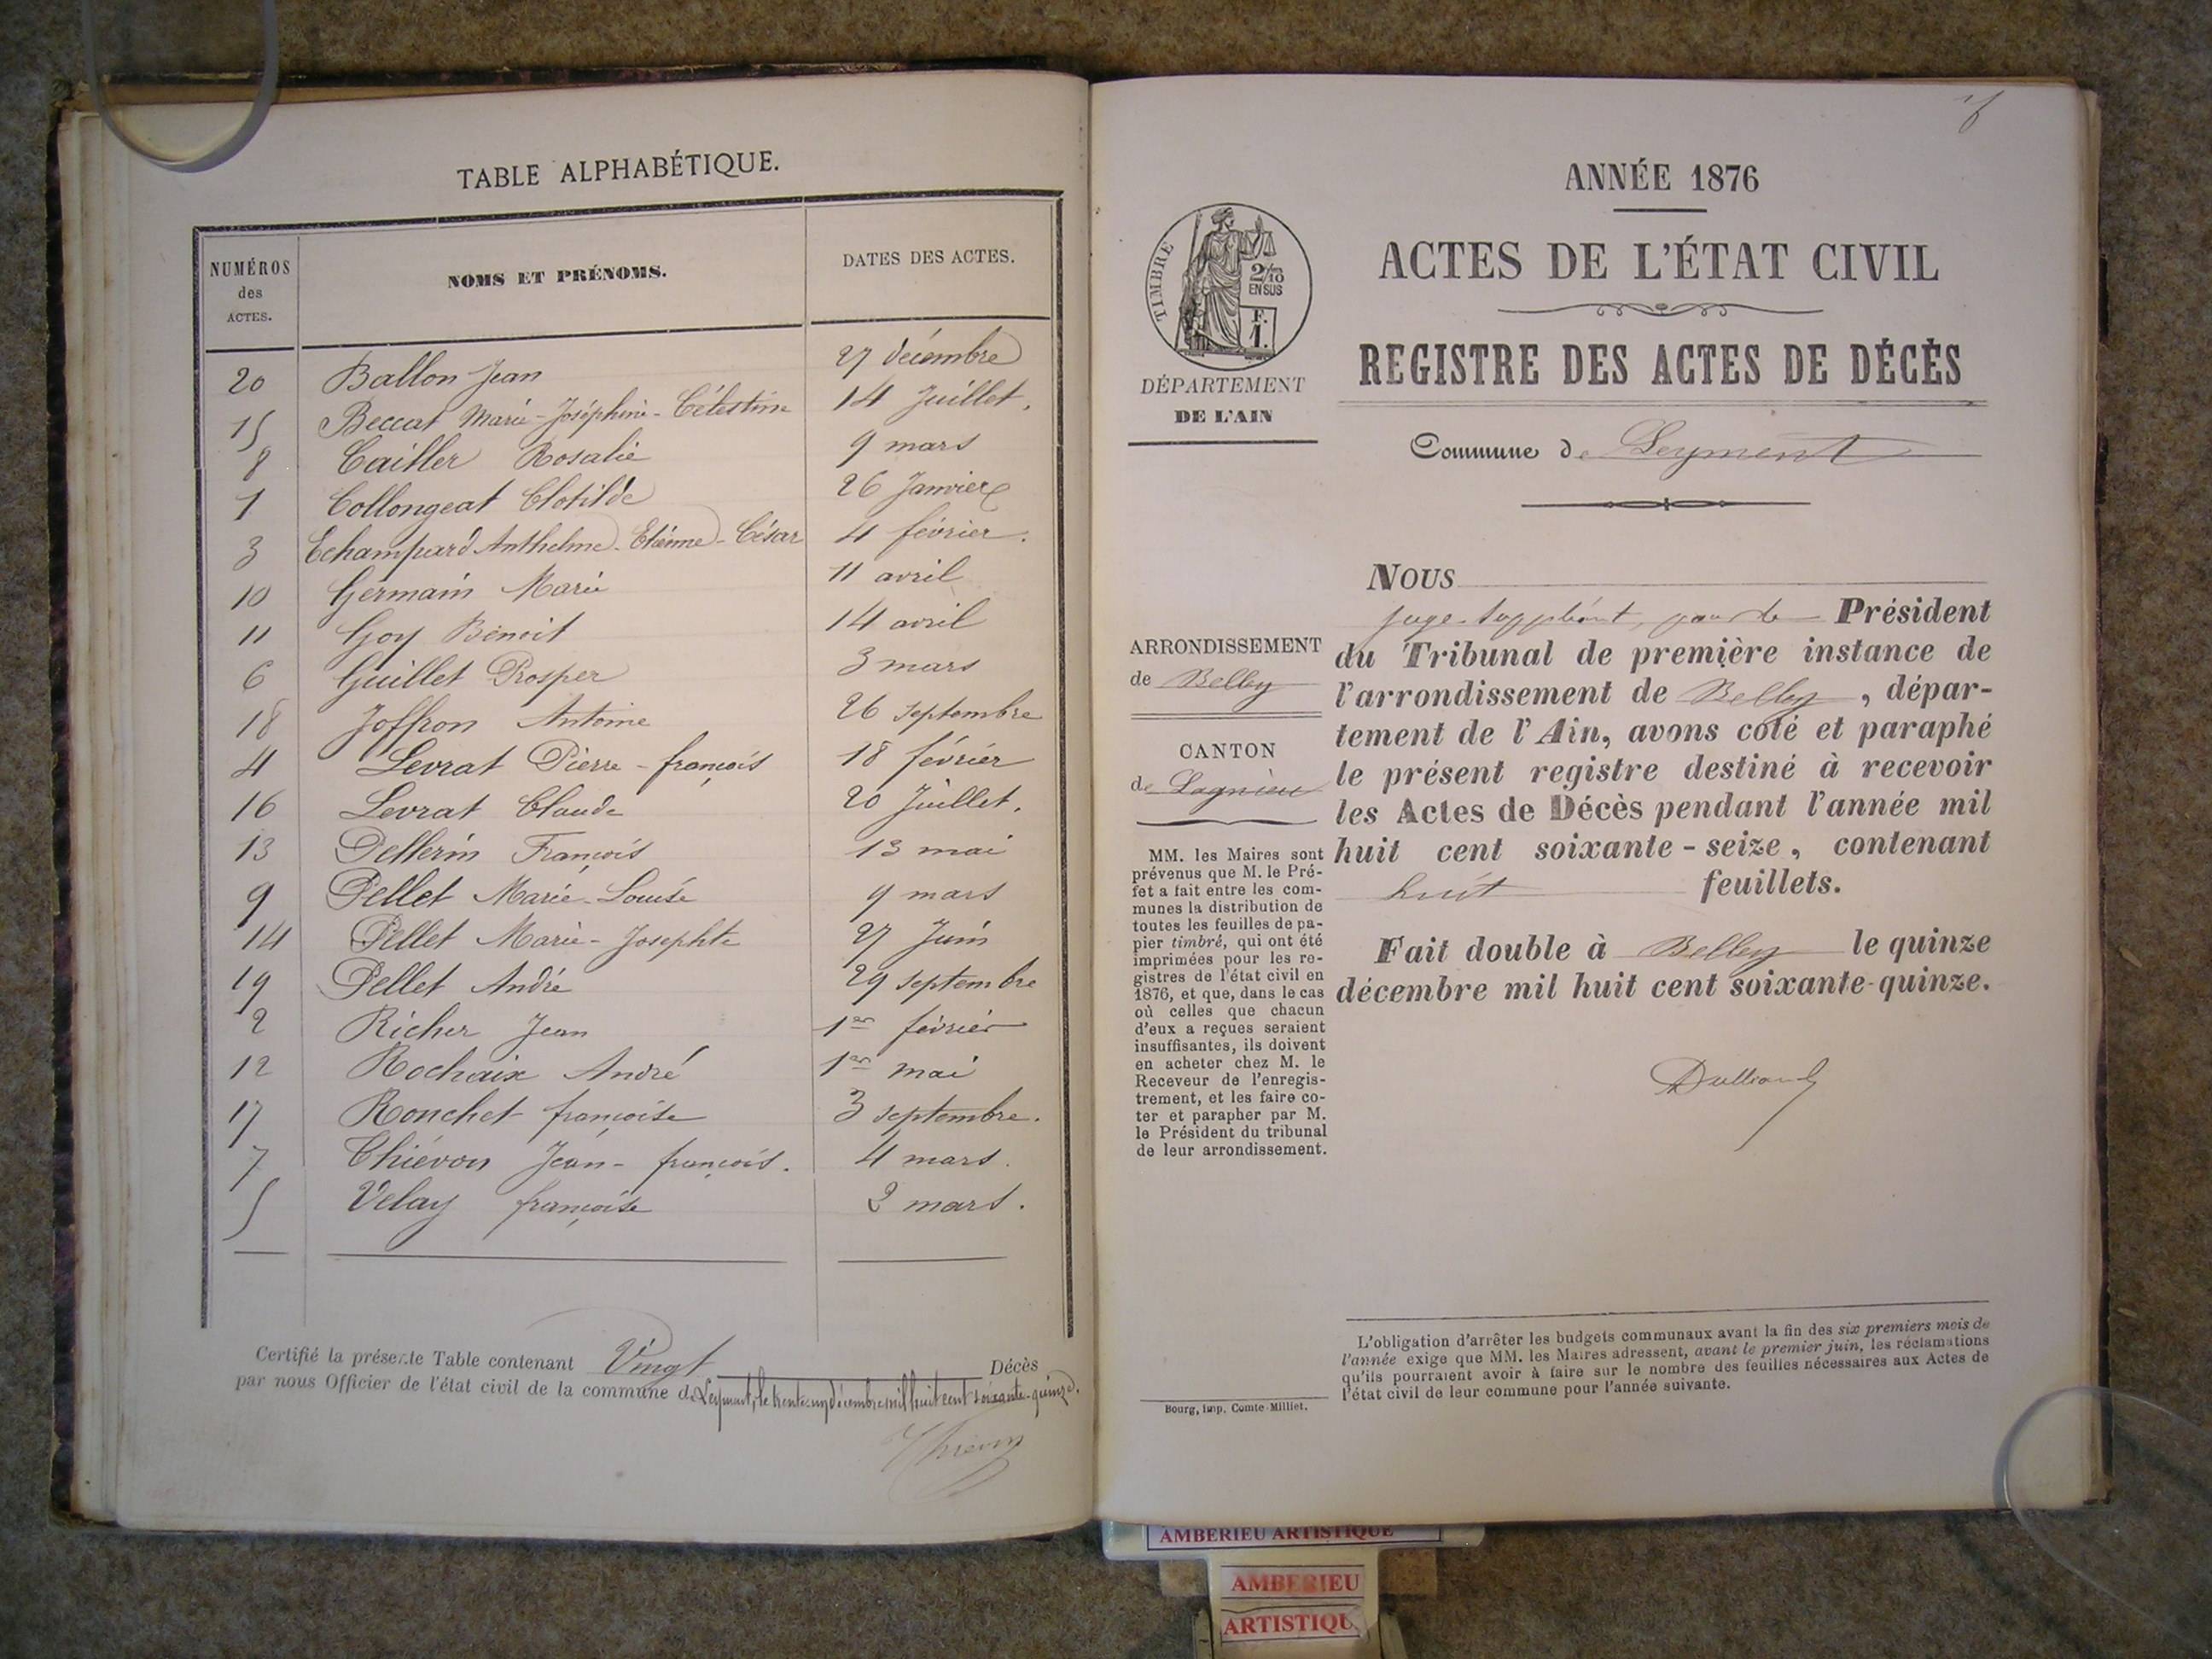 TABLE ALPHABÉTIQUE.
NUMÉROS des ACTES. NOMS ET PRÉNOMS. DATES DES ACTES.
20 Ballon Jean 27 décembre
15 Beccat Marie-Joséphine-Célestine 14 Juillet.
8 Cailler Rosalie 9 mars
1 Collongeat Clotilde 26 Janvier
3 Echampard Anthelme-Etienne-César 4 février.
10 Germain Marie 11 avril
11 Goy Benoit 14 avril
6 Guillet Prosper 3 mars
18 Joffron Antoine 26 septembre
4 Levrat Pierre-françois 18 février
16 Levrat Claude 20 Juillet.
13 Pellerin François 13 mai
9 Pellet Marie-Louise 9 mars
14 Pellet Marie-Josephte 27 Juin
19 Pellet André 29 septembre
2 Richer Jean 1er février
12 Rochaix André 1er mai
17 Ronchet françoise 3 septembre.
7 Thiévon Jean-françois. 4 mars.
5 Velay françoise 2 mars.
Certifié la présente Table contenant Vingt Décès
par nous Officier de l'état civil de la commune de Leyment, le trente-un décembre mil huit cent soixante-quinze.
Thiévon
ANNÉE 1876
ACTES DE L'ÉTAT CIVIL
REGISTRE DES ACTES DE DÉCÈS
TIMBRE
2/10
EN SUS
F.
1.
DÉPARTEMENT
DE L'AIN
Commune de Leyment
ARRONDISSEMENT
de Belley
CANTON
de Lagnieu
MM. les Maires sont
prévenus que M. le Pré-
fet a fait entre les com-
munes la distribution de
toutes les feuilles de pa-
pier timbré, qui ont été
imprimées pour les re-
gistres de l'état civil en
1876, et que, dans le cas
où celles que chacun
d'eux a reçues seraient
insuffisantes, ils doivent
en acheter chez M. le
Receveur de l'enregis-
trement, et les faire co-
ter et parapher par M.
le Président du tribunal
de leur arrondissement.
NOUS
juge-suppléant, pour le Président
du Tribunal de première instance de
l'arrondissement de Belley, dépar-
tement de l'Ain, avons coté et paraphé
le présent registre destiné à recevoir
les Actes de Décès pendant l'année mil
huit cent soixante-seize, contenant
huit feuillets.
Fait double à Belley le quinze
décembre mil huit cent soixante-quinze.
L'obligation d'arrêter les budgets communaux avant la fin des six premiers mois de
l'année exige que MM. les Maires adressent, avant le premier juin, les réclamations
qu'ils pourraient avoir à faire sur le nombre des feuilles nécessaires aux Actes de
l'état civil de leur commune pour l'année suivante.
Bourg, imp. Comte-Milliet.
AMBERIEU ARTISTIQUE
AMBERIEU
ARTISTIQU